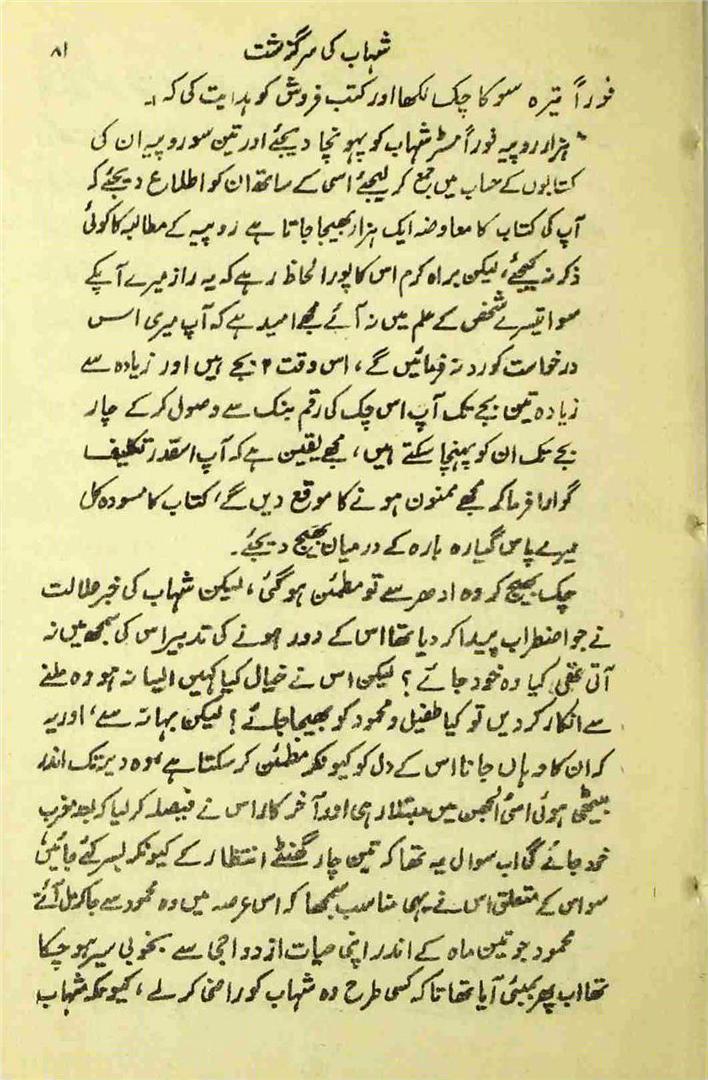 شہاب کی سرگزشت ۸۱
فوراً تیرہ سو کا چک لکھا اور کتب فروش کو ہدایت کی کہ :۔
"ہزار روپیہ فوراً مسٹر شہاب کو پہونچا دیجئے اور تین سو روپیہ ان کی
کتابوں کے حساب میں جمع کر لیجئے اسی کے ساتھ ان کو اطلاع دیجئے کہ
آپ کی کتاب کا معاوضہ ایک ہزار بھیجا جاتا ہے روپیہ کے مطالبہ کا کوئی
ذکر نہ کیجئے، لیکن براہ کرم اس کا پورا لحاظ رہے کہ یہ راز میرے آپکے
سوا تیسرے شخص کے علم میں نہ آئے مجھے امید ہے کہ آپ میری اس
درخواست کو رد نہ فرمائیں گے، اس وقت ۲ بجے ہیں اور زیادہ سے
زیادہ تین بجے تک آپ اس چک کی رقم بنک سے وصول کر کے چار
بجے تک ان کو پہنچا سکتے ہیں، مجھے یقین ہے کہ آپ اسقدر تکلیف
گوارا فرما کر مجھے ممنون ہونے کا موقع دیں گے، کتاب کا مسودہ کل
میرے پاس گیارہ بارہ کے درمیان بھیج دیجئے۔
چک بھیج کر وہ ادھر سے تو مطمئن ہو گئی، لیکن شہاب کی خبر علالت
نے جو اضطراب پیدا کر دیا تھا اس کے دور ہونے کی تدبیر اس کی سمجھ میں نہ
آتی تھی کیا وہ خود جائے؟ لیکن اس نے خیال کیا کہیں ایسا نہ ہو وہ ملنے
سے انکار کر دیں تو کیا طفیل و محمود کو بھیجا جائے؟ لیکن بہانہ سے، اور یہ
کہ ان کا وہاں جانا اس کے دل کو کیونکر مطمئن کر سکتا ہے، وہ دیر تک اندر
بیٹھی ہوئی اسی الجھن میں مبتلا رہی اور آخر کار اس نے فیصلہ کر لیا کہ بعد مغرب
خود جائے گی اب سوال یہ تھا کہ تین چار گھنٹے انتظار کے کیونکر بسر کئے جائیں،
سو اس کے متعلق اس نے یہی مناسب سمجھا کہ اس عرصہ میں وہ محمود سے جا کر مل آئے
محمود جو تین ماہ کے اندر اپنی حیات ازدواجی سے بخوبی سیر ہو چکا
تھا اب پھر بمبئی آیا تھا تاکہ کسی طرح وہ شہاب کو راضی کر لے، کیونکہ شہاب